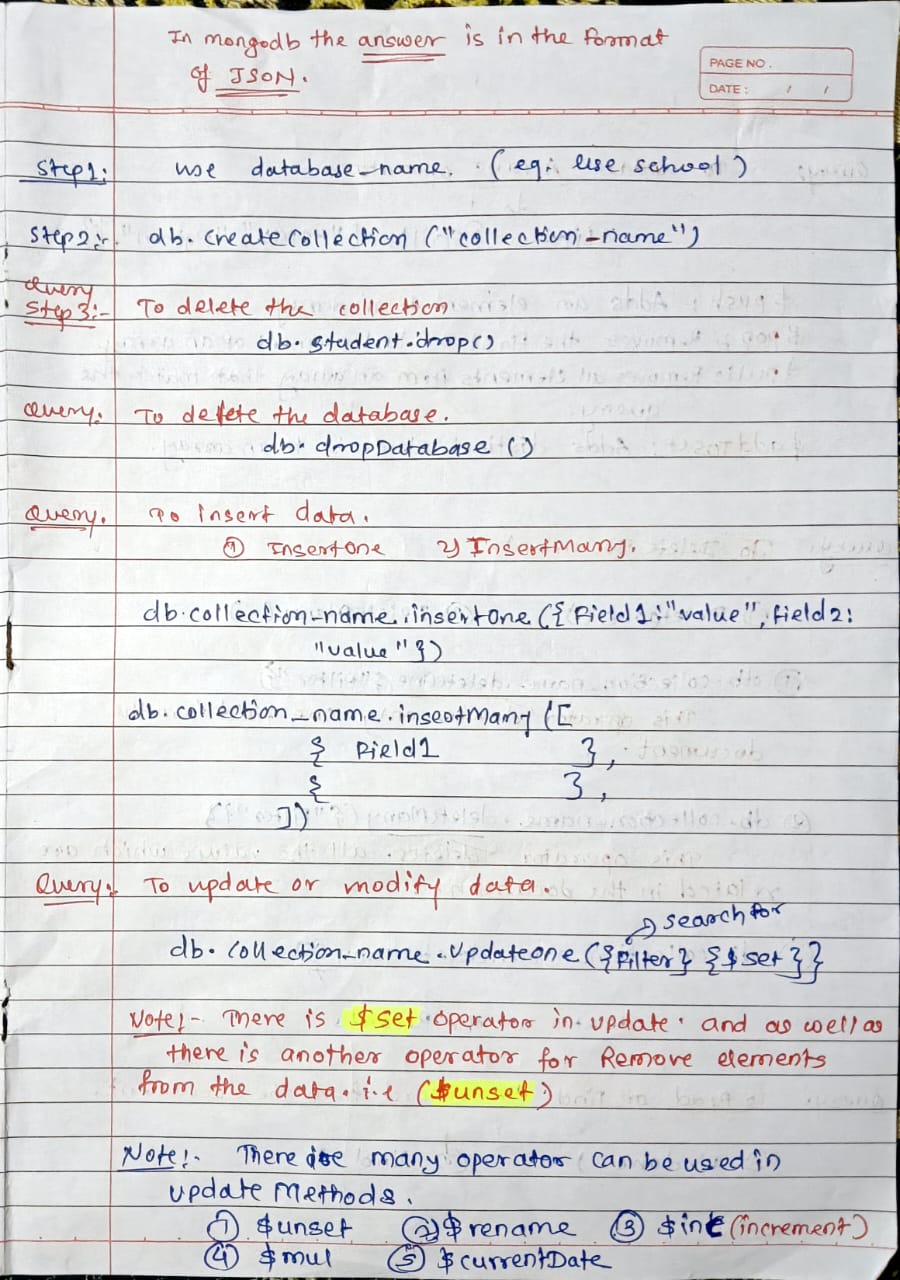 In mongodb the answer is in the format
of JSON.
PAGE NO.
DATE: / /
Step1: use database_name. (eg: use school)
Step2:- db.createCollection ("collection_name")
Query
Step 3:- To delete the collection
db.student.drop()
Query. To delete the database.
db.dropDatabase ()
Query. To insert data.
① InsertOne 2) InsertMany.
db.collection_name.insertOne ({ Field1:"value", field2:
"value"})
db.collection_name.insertMany ([
{ Field1 },
{ },
])
Query: To update or modify data.
→ search for
db.collection_name.Updateone ({filter} {$set}}
Note!- There is $set operator in update. and as well as
there is another operator for Remove elements
from the data. i.e ($unset)
Note!- There are many operator can be used in
update Methods.
① $unset ② $rename ③ $inc (increment)
④ $mul ⑤ $currentDate